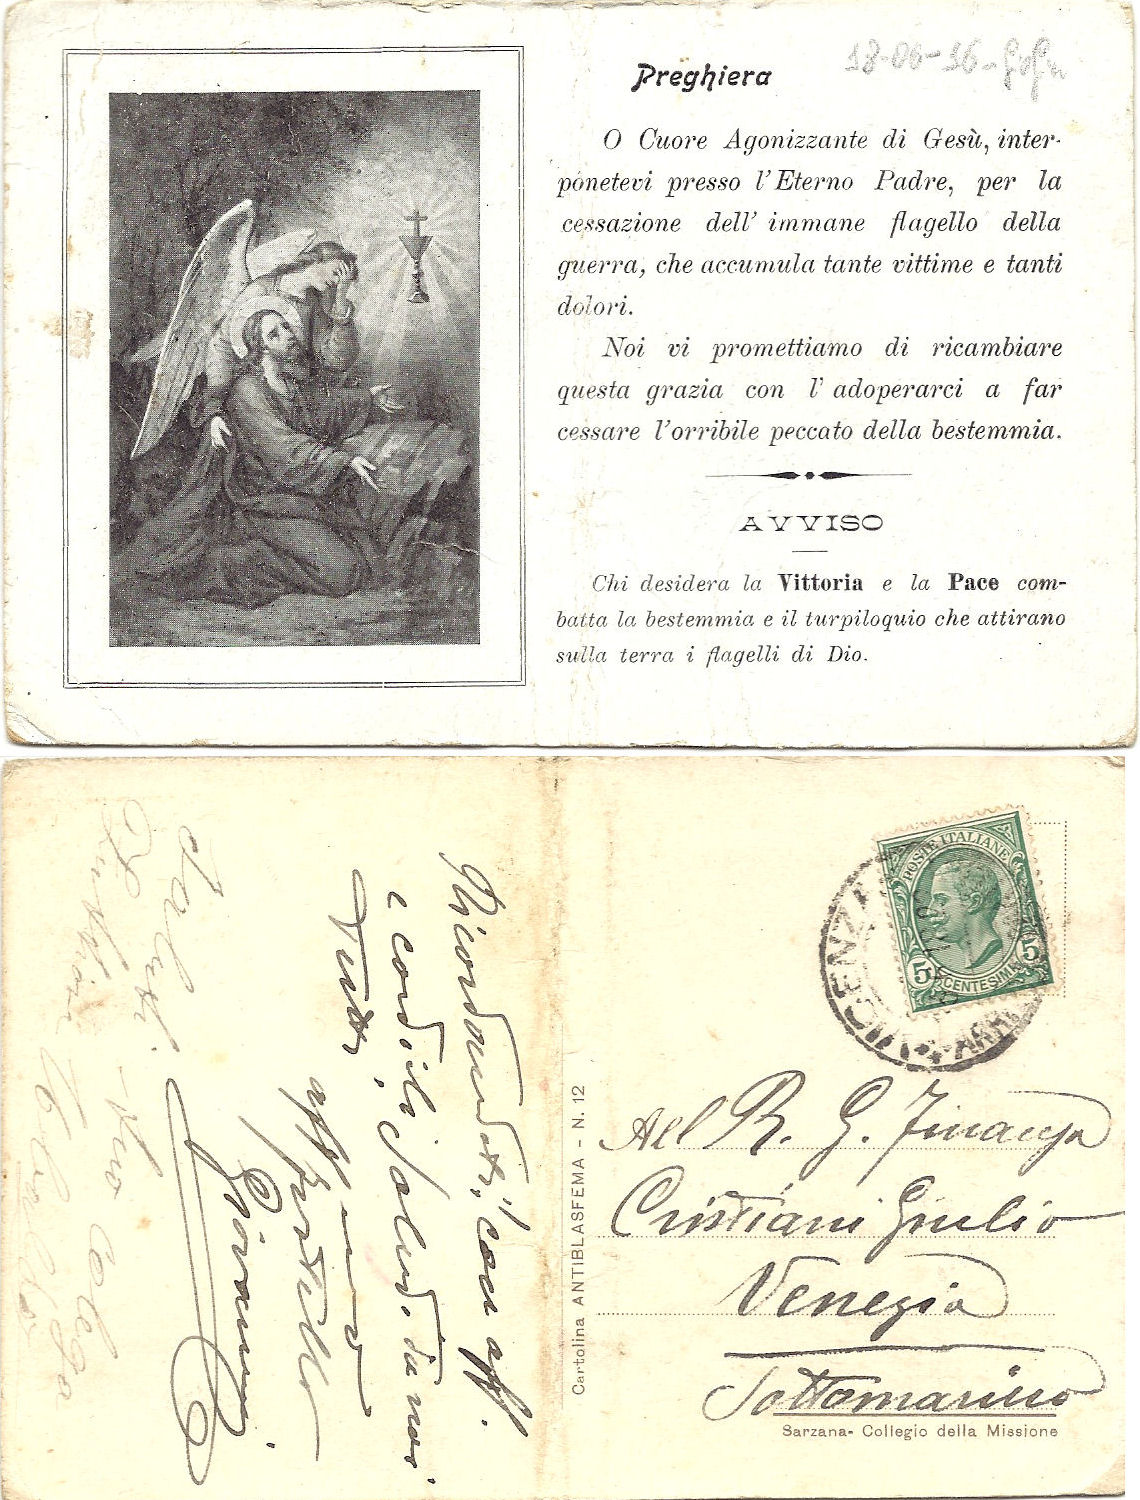 Preghiera
18-06-16
O Cuore Agonizzante di Gesù, inter-
ponetevi presso l'Eterno Padre, per la
cessazione dell' immane flagello della
guerra, che accumula tante vittime e tanti
dolori.
Noi vi promettiamo di ricambiare
questa grazia con l' adoperarci a far
cessare l'orribile peccato della bestemmia.
AVVISO
Chi desidera la Vittoria e la Pace com-
batta la bestemmia e il turpiloquio che attirano
sulla terra i flagelli di Dio.
POSTE ITALIANE
5 CENTESIMI 5
All R. G. Finanza
Cristiani Giulio
Venezia
Sottomarino
Sarzana- Collegio della Missione
Cartolina ANTIBLASFEMA - N. 12
Ricordandoti, con aff.
e cordiali saluti da noi
tutti,
aff mo
fratello
Giovanni
Saluti